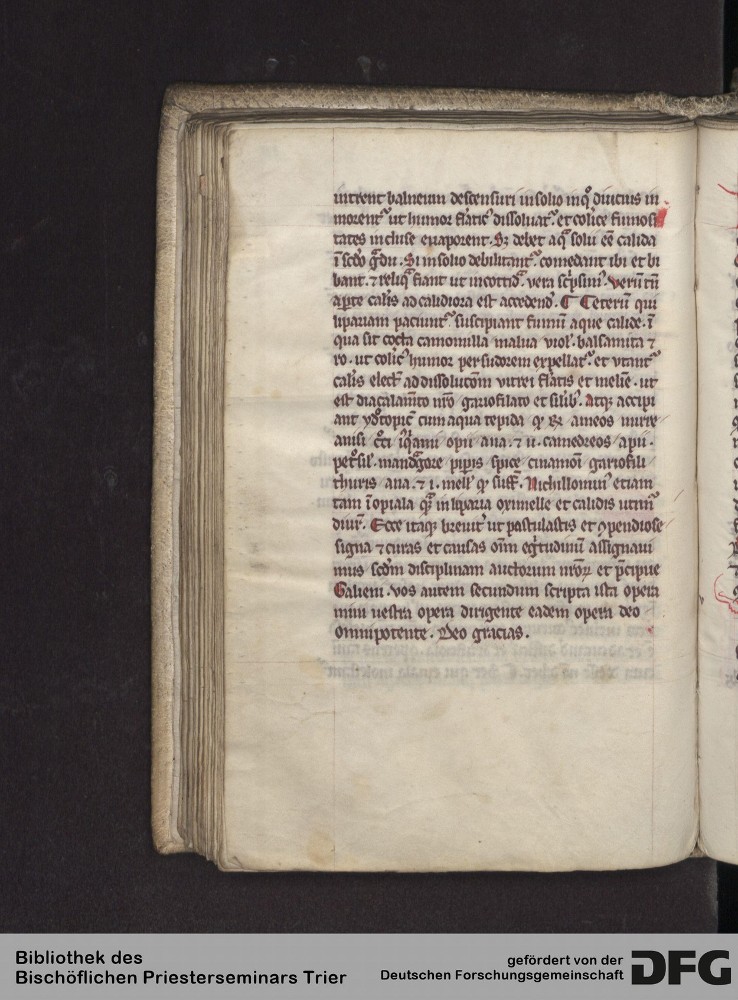 intrent balneum descensuri in solio in qͦ diucius in
morentᷣ ut humor flatic᷒ dissoluatᷣ. et colice fumosi
tates incluse euaporent. Sꝫ debet aq̄ solii eē calida
ī scd̓o gͣdu. Si in solio debilitantᷣ. comedant ibi et bi
bant. ⁊ reliq̄ fiant ut in cottid̓. vera sc͛psim᷒. Verūtn̄
calis ad calidiora est accedend̓. C Ceterū qui
lipariam paciuntᷣ suscipiant fumū aque calide. ī
qua sit cocta camomilla malua viol᷒. balsamita ⁊
ro. ut colic᷒ humor per sudorem expellatᷣ. et utantᷣ
calis elect̓ ad dissolucōm vitrei flatis et melīe. ut
est diacalamīto nr̄o gariofilato et sil̓ib᷒. Atqꝫ accipi
ant cum aqua tepida ameos mirre
anisi opii ana. ⁊ ii. camedreos apii.
petͦsil̓. mandͣgore pip̄is spice cinamōī gariofili
thuris ana. ⁊ i. mell̓ Nichillomin᷒ etiam
tam ī opiala in liparia oximelle et calidis utimᷣ
diur̓. Ecce itaqꝫ breuit̓ ut pastulastis et ꝯpendiose
signa ⁊ curas et causas oīm eg̓tudinū assignaui
mus scd̓m disciplinam auctorum nr̄oꝝ et p̄cipue
Galieni. vos autem secundum scripta ista opera
mini uestra opera dirigente eadem opera deo
omnipotente. Deo gracias.
Bibliothek des
Bischöflichen Priesterseminars Trier
gefördert von der
Deutschen Forschungsgemeinschaft
DFG